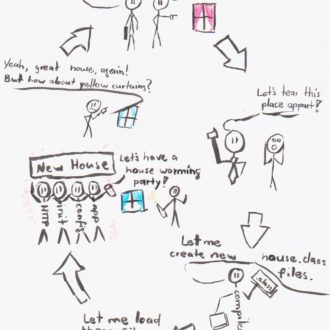 Yeah, great house, again!
But how about yellow curtains?
Let's tear this
place appart!
New House
Let's have a
house warming
party!
HTTP
init
config
app
Let me
create new
house.class
files.
.class
compile
Let me load